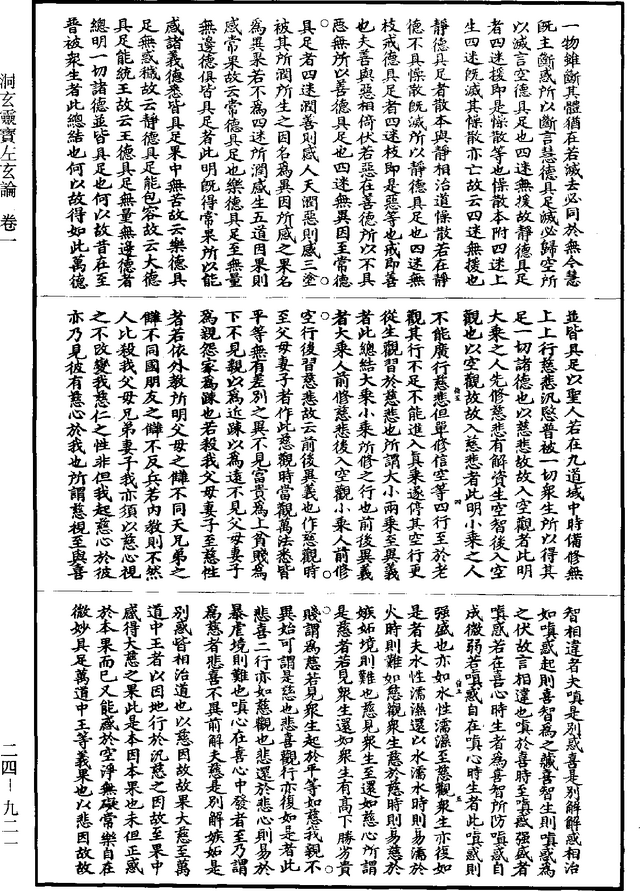 一物雖斷其體猶在若滅去必同於無今慧
既主斷惑所以斷言慧德具足滅必歸空所
以滅言空德具足也四迷無援故靜德具足
者四迷援即是慘散等也慘散本附四迷上
生四迷既滅其慘散亦亡故云四迷無援也
靜德具足者散本與靜相治道慘散若在靜
德不具慘散既滅所以靜德具足也四迷無
枝戒德具足者四迷枝即是惡等也戒即善
也夫善與惡相倚伏若惡在善德所以不具
惡無所以善德具足也四迷無異因至常德
具足者四迷潤善則感人天潤惡則感三塗
被其所潤所生之因名為異因所感之果名
為異果若不為四迷所潤感生五道因果則
感常果故云常德具足也樂德具足至無量
無邊德俱皆具足者此明既得常果所以能
感諸義德悉皆具足果中無苦故云樂德具
足無惑穢故云靜德具足能包容故云大德
具足能統王故云王德具足無量無邊德者
總明一切諸德並皆具足也何以故昔在至
普被衆生者此總結也何以故得如此萬德
並皆具足以聖人若在九道域中時備修無
上上行慈悲汎愍普被一切衆生所以得其
足一切諸德也以慈悲故故入空觀者此明
大乘之人先修慈悲有解資生空智後入空
觀也以空觀故故入慈悲者此明小乘之人
不能廣行慈悲但單修信空等四行至於老
觀其行不足不能進入真乘遂停其空行更
從生觀習於慈悲也所謂大小兩乘至異義
者此總結大乘小乘所修之行也前後異義
者大乘人前修慈悲後入空觀小乘人前修
空行後習慈悲故云前後異義也作慈觀時
至父母妻子者作此慈觀時當觀萬法悉皆
平等無有差別之異不見富貴為上貧賤為
下不見親以為近踈以為遠不見父母妻子
為親怨家為踈也若殺我父母妻子至慈性
者若依外教所明父母之讎不同天兄弟之
讎不同國朋友之讎不反兵若內教則不然
人比殺我父母兄弟妻子我亦須以慈心視
之不改變我慈仁之性非但我起慈心於彼
亦乃見彼有慈心於我也所謂慈視至與喜
智相違者夫嗔是別惑喜是別解解惑相治
如嗔惑起則喜智為之藏喜智生則嗔惑為
之伏故言相違也嗔於喜時至嗔惑強盛者
嗔惑若在喜心時生者為喜智所防嗔惑自
成微弱若嗔惑自在嗔心時生者此嗔惑則
強盛也亦如水性濡濕至慈觀衆生亦復如
是者夫水性濡濕還以水濡水時則易濡於
火時則難如慈觀衆生慈於慈時則易慈於
嫉妬境則難也慈見衆生至還如慈心所謂
是慈者若見衆生還如衆生有高下勝劣貴
賤謂為慈若見衆生起於平等如慈我親不
異始可謂是慈也悲喜觀行亦復如是者此
悲喜二行亦如慈觀也悲還於悲心則易於
暴虐境則難也嗔心在喜心中發者至乃謂
為慈者悲喜不異前解夫慈是別解嫉妬是
別惑皆相治道也以慈因故故果大慈至萬
道中王者以因地行於汎慈之因故至果中
感得大慈之果此是本因本果也未但正感
於本果而已又能感於空淨無礙常樂自在
微妙具足萬道中王等義果也以悲因故故
洞玄靈寶左玄論 卷一
二四—九二一